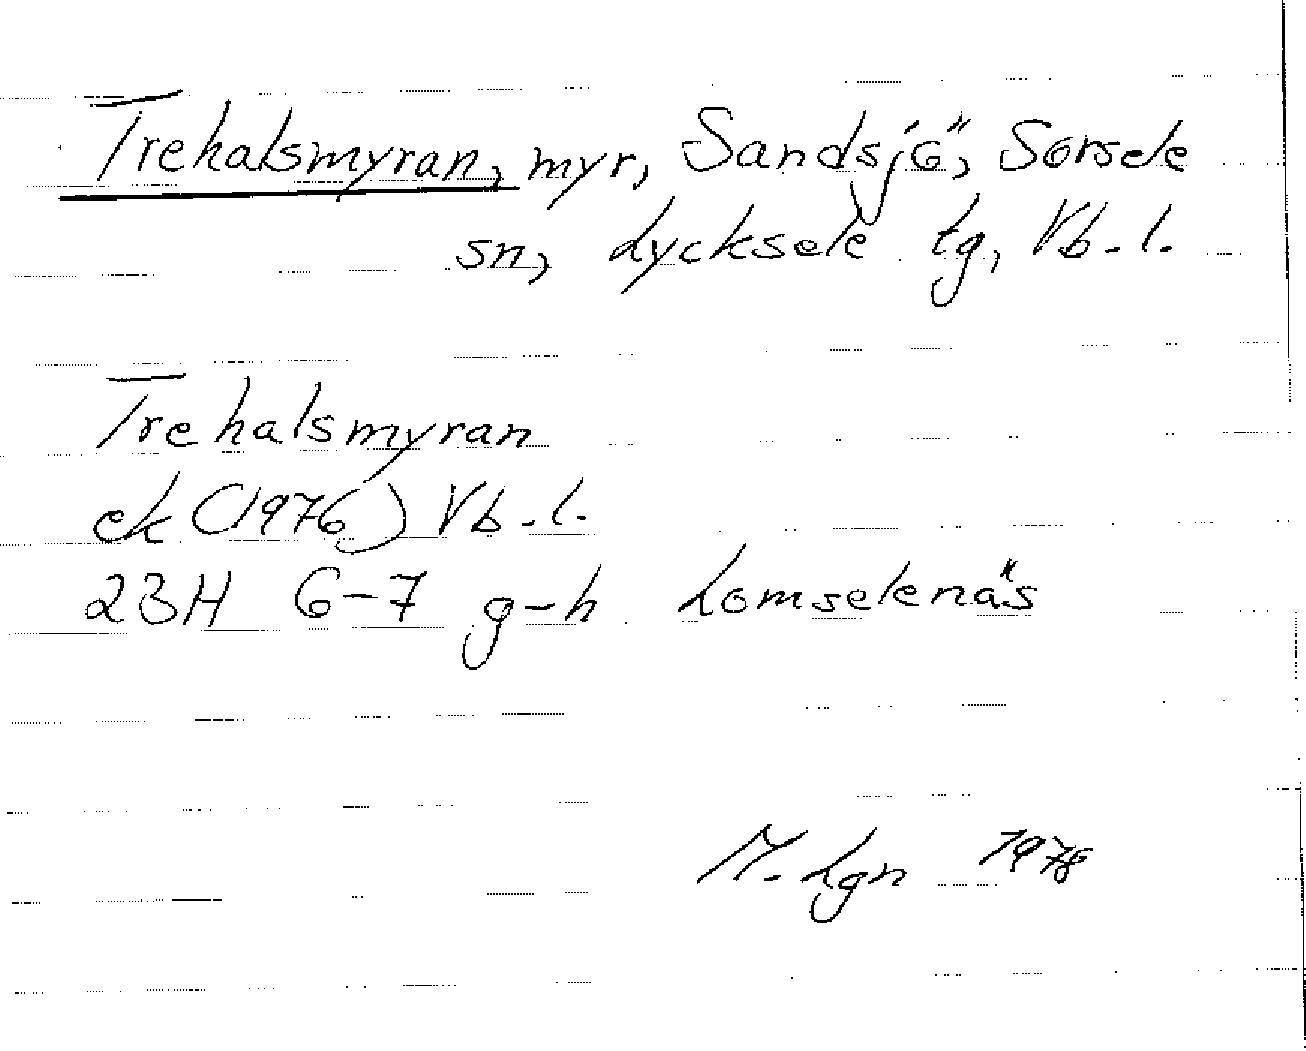 Trehalsmyran, myr, Sandsjö, Sorsele
sn, Lycksele tg, Vb.l.
Trehalsmyran
ek (1976) Vb.l.
23H 6-7 g-h Lomselenäs
M. Lgn 1978